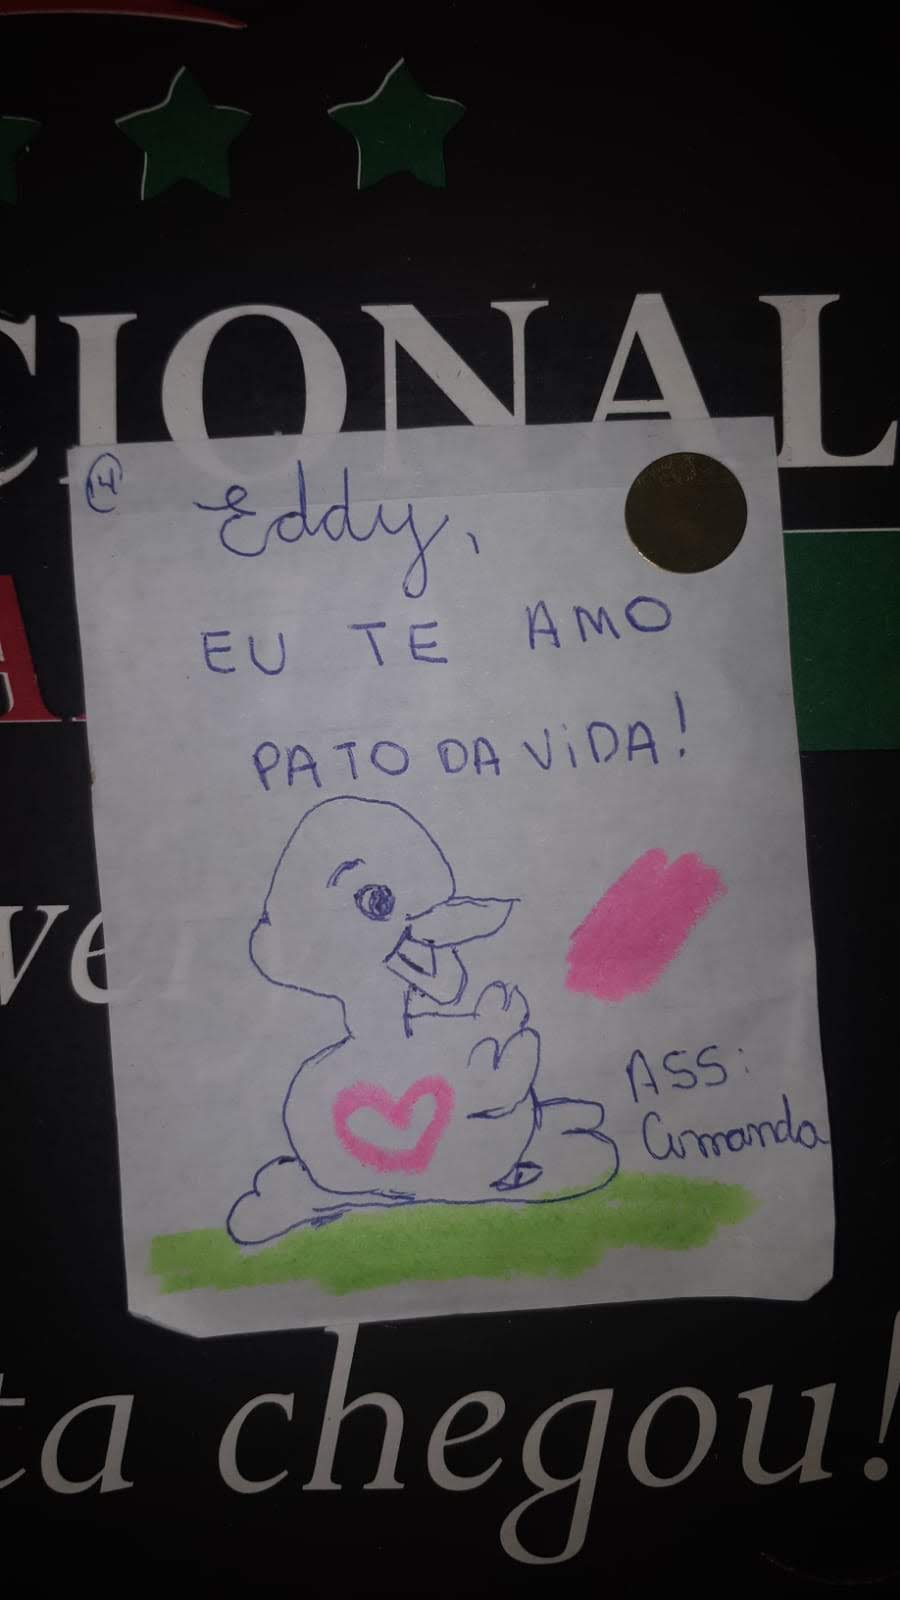 CIONAL
14
Eddy,
EU TE AMO
PATO DA VIDA!
ve
ASS:
Amanda
ta chegou!